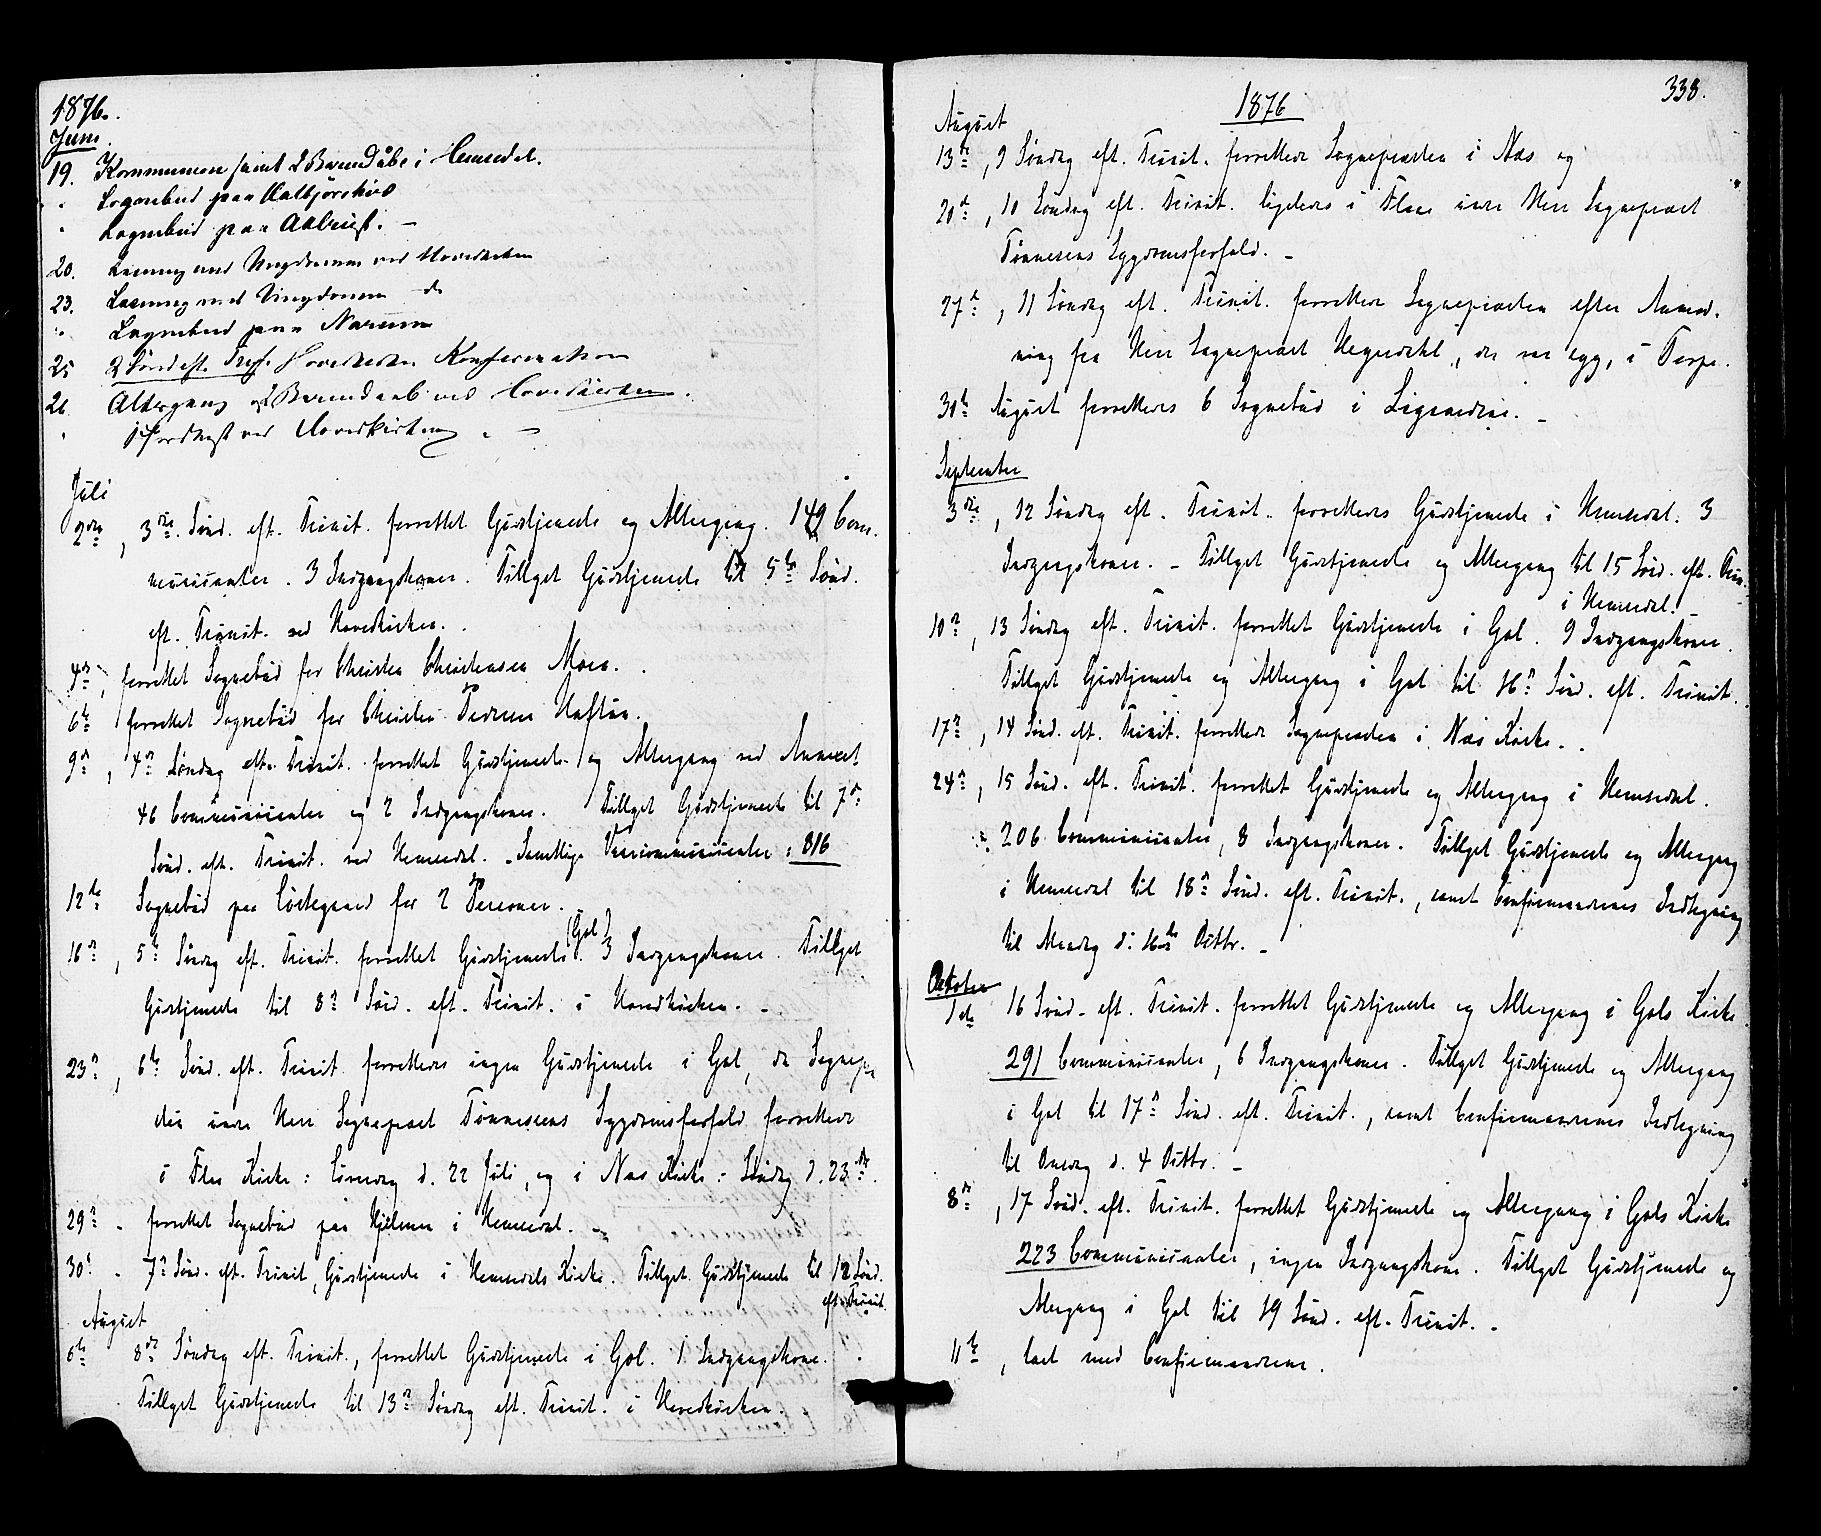 1876.
Juni
19. Kommunion samt 2 Barnedåb i Hemsedal.
" Sognebud paa
" Sognebud paa
20. Læsning med Ungdommen ved Hovedkirken
23. Læsning med Ungdommen do
" Sognebud paa Narum
25 2 Sønd eft. Tref. Hovedkirken Konfirmation
26. Altergang og 2 Barnedaab ved Hovedkirken.
" 1 Jordfæst ved Hovedkirken
Juli
2den, 3die Sønd. eft. Trinit. forrettet Gudstjeneste og Altergang. 149 Com-
municanter. 3 Indgangskoner. Tillyst Gudstjeneste til 5te Sønd.
eft. Trinit. ved Hovedkirken.
4de, forrettet Sognebud for Christen Christensen Moen.
6te forrettet Sognebud for Pedersen Haftun.
9de, 4de Søndag eft. Trinit. forrettet Gudstjeneste og Altergang ved Annexet
46 Communicanter og 2 Indgangskoner. Tillyst Gudstjeneste til 7de
Sønd. eft. Trinit. ved Hemsedal. Samtlige Vaarcommunicanter: 816
12te Sognebud paa for 2 Personer.
16de, 5te Søndag eft. Trinit. forrettet Gudstjeneste (Gol) 3 Indgangskoner. Tillyst
Gudstjeneste til 8de Sønd. eft. Trinit. i Hovedkirken.
23de, 6te Sønd. eft. Trinit. forrettedes ingen Gudstjeneste i Gol, da Sognepræ-
sten under Herr Sognepræst Tønnesens Sygdomsforfald forrettede
i Flaa Kirke: Løverdag d. 22 Juli, og i Næs Kirke: Søndag d. 23de.
29de forrettet Sognebud paa Hjelmen i Hemsedal.
30te 7de Sønd. eft. Trinit, Gudstjeneste i Hemsedals Kirke. Tillyst Gudstjeneste til 12 Sønd.
eft. Trinit.
August
6te 8de Søndag eft. Trinit., forrettet Gudstjeneste i Gol. 1 Indgangskone.
Tillyst Gudstjeneste til 13de Søndag eft. Trinit. i Hovedkirken.
338.
1876
August
13de, 9 Søndag eft. Trinit. forrettede Sognepræsten i Næs og
20de, 10 Søndag eft. Trinit. ligeledes i Flaa under Herr Sognepræst
Tønnesens Sygdomsforfald.
27de, 11 Søndag eft. Trinit. forrettede Sognepræsten efter Anmod-
ning fra Herr Sognepræst Hegnedahl, der var syg, i Torpe.
30te August forrettedes 6 Sognebud i
September
3die, 12 Søndag eft. Trinit. forrettedes Gudstjeneste i Hemsedal. 3
Indgangskoner. Tillyst Gudstjeneste og Altergang til 15 Sønd. eft. Trin.
i Hemsedal.
10de, 13 Søndag eft. Trinit. forrettet Gudstjeneste i Gol. 9 Indgangskoner.
Tillyst Gudstjeneste og Altergang i Gol til 16de Sønd. eft. Trinit.
17de, 14 Sønd. eft. Trinit. forrettede Sognepræsten i Næs Kirke.
24de, 15 Sønd. eft. Trinit. forrettet Gudstjeneste og Altergang i Hemsedal.
206 Communicanter, 8 Indgangskoner. Tillyst Gudstjeneste og Altergang
i Hemsedal til 18de Sønd. eft. Trinit., samt Confirmandernes Indtegning
til Mandag d. 16de Octbr.
October
1ste 16 Sønd. eft. Trinit. forrettet Gudstjeneste og Altergang i Gols Kirke
291 Communicanter, 6 Indgangskoner. Tillyst Gudstjeneste og Altergang
i Gol til 17de Sønd. eft. Trinit., samt Confirmandernes Indtegning
til Onsdag d. 4 Octbr.
8de, 17 Sønd. eft. Trinit. forrettet Gudstjeneste og Altergang i Gols Kirke
223 Communicanter, ingen Indgangskone. Tillyst Gudstjeneste og
Altergang i Gol til 19 Sønd. eft. Trinit.
11te, læst med Confirmanderne.